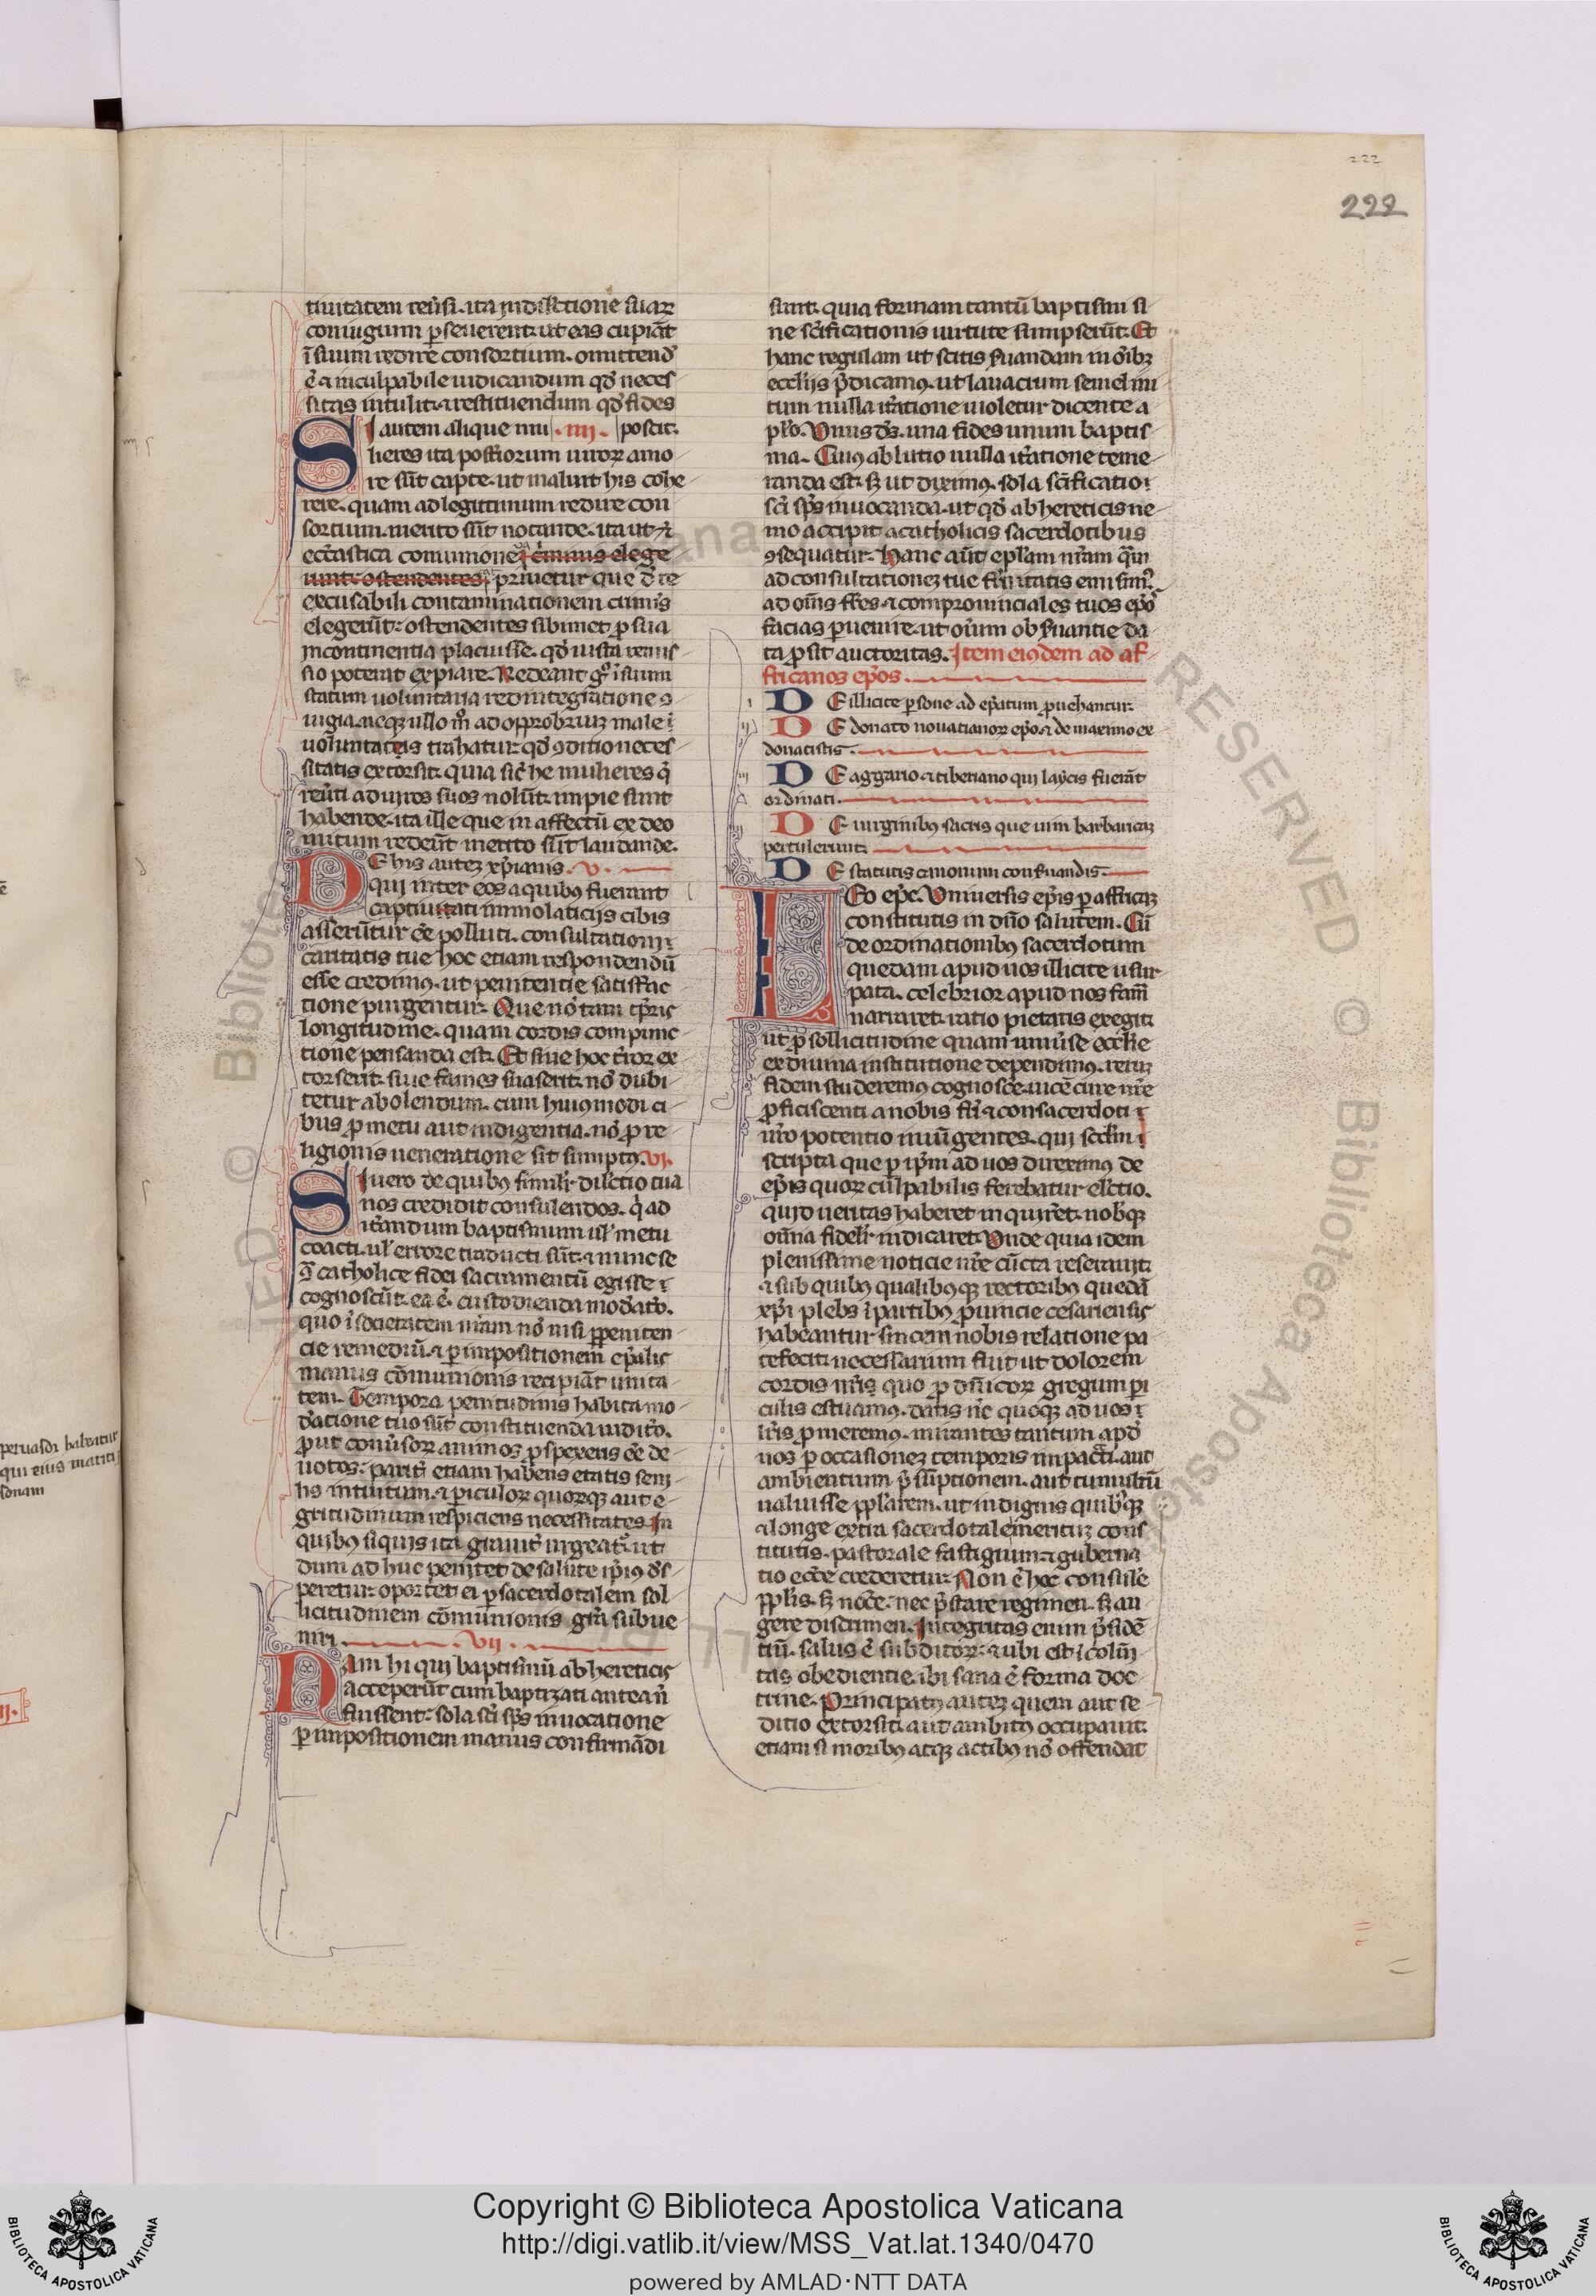 222
222
tiuitatem reuͥsi. ita in dilctione suaꝝ
coniugum ꝑseuerent. ut eas cupiāt
ī suum redire consortium. omittend᷒
ē ⁊ inculpabile iudicandum qd᷒ neces
sitas intulit. ⁊ restituendum qd᷒ fides
SI autem alique mu .iiij. poscit.
lieres ita postͥiorum uiroꝝ amo
re sūt capte. ut malint his cohe
rere. quam ad legittimum redire con
sortium. merito sūt notande. ita ut ⁊
ecctastica comunione cͥminis elege
runt ostendentes priuetur que d̄ re
excusabili contaminationem cͥminis
elegerūt. ostendentes sibimet ꝓ sua
incontinentia placuisse. qd᷒ iusta remis
sio poterat expiare. Redeant gͦ ī suum
statum uoluntaria redintegratione ꝯ
iugia. neqꝫ ullo mͦ ad opprobriuꝫ male ī
uoluntatis trahatur. qd᷒ ꝯditio neces
sitatis extorsit. quia sic̄ he mulieres q̄
reuͥti ad uiros suos nolūt. impie sunt
habende. ita ille que in affectū ex deo
initum redeūt merito sūt laudande.
DE his auteꝫ xp̄ianis. v.
qui inter eos a quibꝰ fuerant
captiuitati immolaticijs cibis
asserūtur eē polluti. consultationi
caritatis tue hoc etiam respondendū
esse credimꝰ. ut penitentie satisfac
tione purgentur. Que nō tam tp̄ris
longitudine. quam cordis compunc
tione pensanda est. Et siue hoc tͥror ex
torserit. siue fames suaserit. nō dubi
tetur abolendum. cum huiꝰmodi ci
bus ꝓ metu aut indigentia. nō ꝓ re
ligionis ueneratione sit sumptꝰ. vi.
SI uero de quibꝰ similr dilctio tua
nos credidit consulendos. qͥ ad
iͭandum baptismum ul᷒ metu
coacti. ul᷒ errore traducti sūt. ⁊ nunc se
ꝯ catholice fidei sacramentū egisse
cognoscūt. ea ē custodienda modͣato.
quo ī societatem nr̄am nō nisi ꝑ peniten
cie remediū. ⁊ ꝑ impositionem ep̄alis
manus cōmunionis recipiāt unita
tem. Tempora penitudinis habita mo
dͣatione tuo sūt constituenda iudito.
ꝓut conuͥsoꝝ animos ꝓspexeris eē de
uotos. paritͥ etiam habens etatis seni
lis intuitum. ⁊ ꝑiculoꝝ quoꝝqꝫ aut e
gritudinum respiciens necessitates. In
quibꝰ siquis ita grauitͥ urgeatᷣ. ut
dum ad huc penitet de salute ipiꝰ ds̄
peretur. oportet ei ꝑ sacerdotalem sol
licitudinem cōmunionis grā subue
niri. vij.
NAm hi qui baptismū ab hereticis
acceperūt cum baptizati antea nͦ
fuissent. sola scī sp̄s inuocatione
ꝑ impositionem manus confirmādi
sunt. quia formam tantū baptismi si
ne scīficationis uirtute sumpserūt. Et
hanc regulam ut scitis ẜuandam in oībꝫ
eccl᷒ijs p̄dicamꝰ. ut lauacrum semel ini
tum nulla itͣatione uioletur dicente a
plo᷒. Unus ds̄. una fides unum baptis
ma. Cuiꝰ ablutio nulla itͣatione teme
randa est. ẜꝫ ut diximꝰ. sola scīficatio
scī sp̄s inuocanda. ut qd᷒ ab hereticis ne
mo accipit a catholicis sacerdotibus
ꝯsequatur. Hanc aūt epl᷒am nr̄am quͣm
ad consultationeꝫ tue frͣnitatis emisimꝰ
ad oms̄ fr̄es ⁊ comprouinciales tuos ep̄o
facias ꝑuenire. ut oīum obẜuantie da
ta ꝓsit auctoritas. Item eiꝰdem ad af
fricanos ep̄os.
i DE illicite ꝑsone ad ep̄atum ꝓuehantur.
ij DE donato nouatianoꝝ ep̄o. ⁊ de maximo ex
donatistis.
iij DE aggario ⁊ tiberiano qui laycis fuerāt
ordinati.
iiij DE uirginibꝰ sacris que uim barbaricaꝫ
pertulerunt.
DE statutis canonum conẜuandis.
LEo ep̄c. Uniuersis ep̄is ꝑ affricaꝫ
constitutis in dn̄o salutem. Cū
de ordinationibꝰ sacerdotum
quedam apud uos illicite usur
pata. celebrior apud nos fama
narraret. ratio pietatis exegit.
ut ꝓ sollicitudine quam uniuͥse eccl᷒ie
ex diuina institutione dependimꝰ. reruꝫ
fidem studeremꝰ cognosce. uicē cure nr̄e
ꝓficiscenti a nobis fri ⁊ consacerdoti
nr̄o potentio iniūgentes. qui scdm
scripta que ꝑ ip̄m ad uos direximꝰ de
ep̄is quoꝝ culpabilis ferebatur el᷒ctio.
quid ueritas haberet inquireret. nobͥqꝫ
omnia fidelr᷒ indicaret. Unde quia idem
plenissime noticie nr̄e cūcta reserauit.
⁊ sub quibꝰ qualibꝰqꝫ rectoribꝰ quedā
xp̄i plebs ī partibꝰ ꝓuincie cesariensis
habeantur sincem nobis relatione pa
tefecit. necessarium fuit ut dolorem
cordis nr̄is quo ꝓ dn̄icoꝝ gregum ꝑi
culis estuamꝰ. datis nc̄ quoqꝫ ad uos
lr̄is ꝓmeremꝰ. mirantes tantum apd᷒
uos ꝑ occasioneꝫ temporis impacͣti. aut
ambientium p̄sūptionem. aut tumultū
ualuisse ppl᷒arem. ut indignis quibꝰqꝫ
⁊ longe extra sacerdotale meritūꝫ cons
titutis. pastorale fastigium ⁊ guberna
tio eccl᷒e crederetur. Non ē hoc consule
ppl᷒is. ẜꝫ noce. nec p̄stare regimen. ẜꝫ au
gere discrimen. Integritas enim p̄sidē
tiū. salus ē subditoꝝ. ⁊ ubi est īcolūi
tas obedientie. ibi sana ē forma doc
trine. Principatꝰ auteꝫ quem aut se
ditio extorsit. aut ambitꝰ occupauit.
etiam si moribꝰ atqꝫ actibꝰ nō offendat
peruasdi
qui eius
Copyright © Biblioteca Apostolica Vaticana
http://digi.vatlib.it/view/MSS_Vat.lat.1340/0470
powered by AMLAD·NTT DATA
BIBLIOTECA APOSTOLICA VATICANA
BIBLIOTECA APOSTOLICA VATICANA